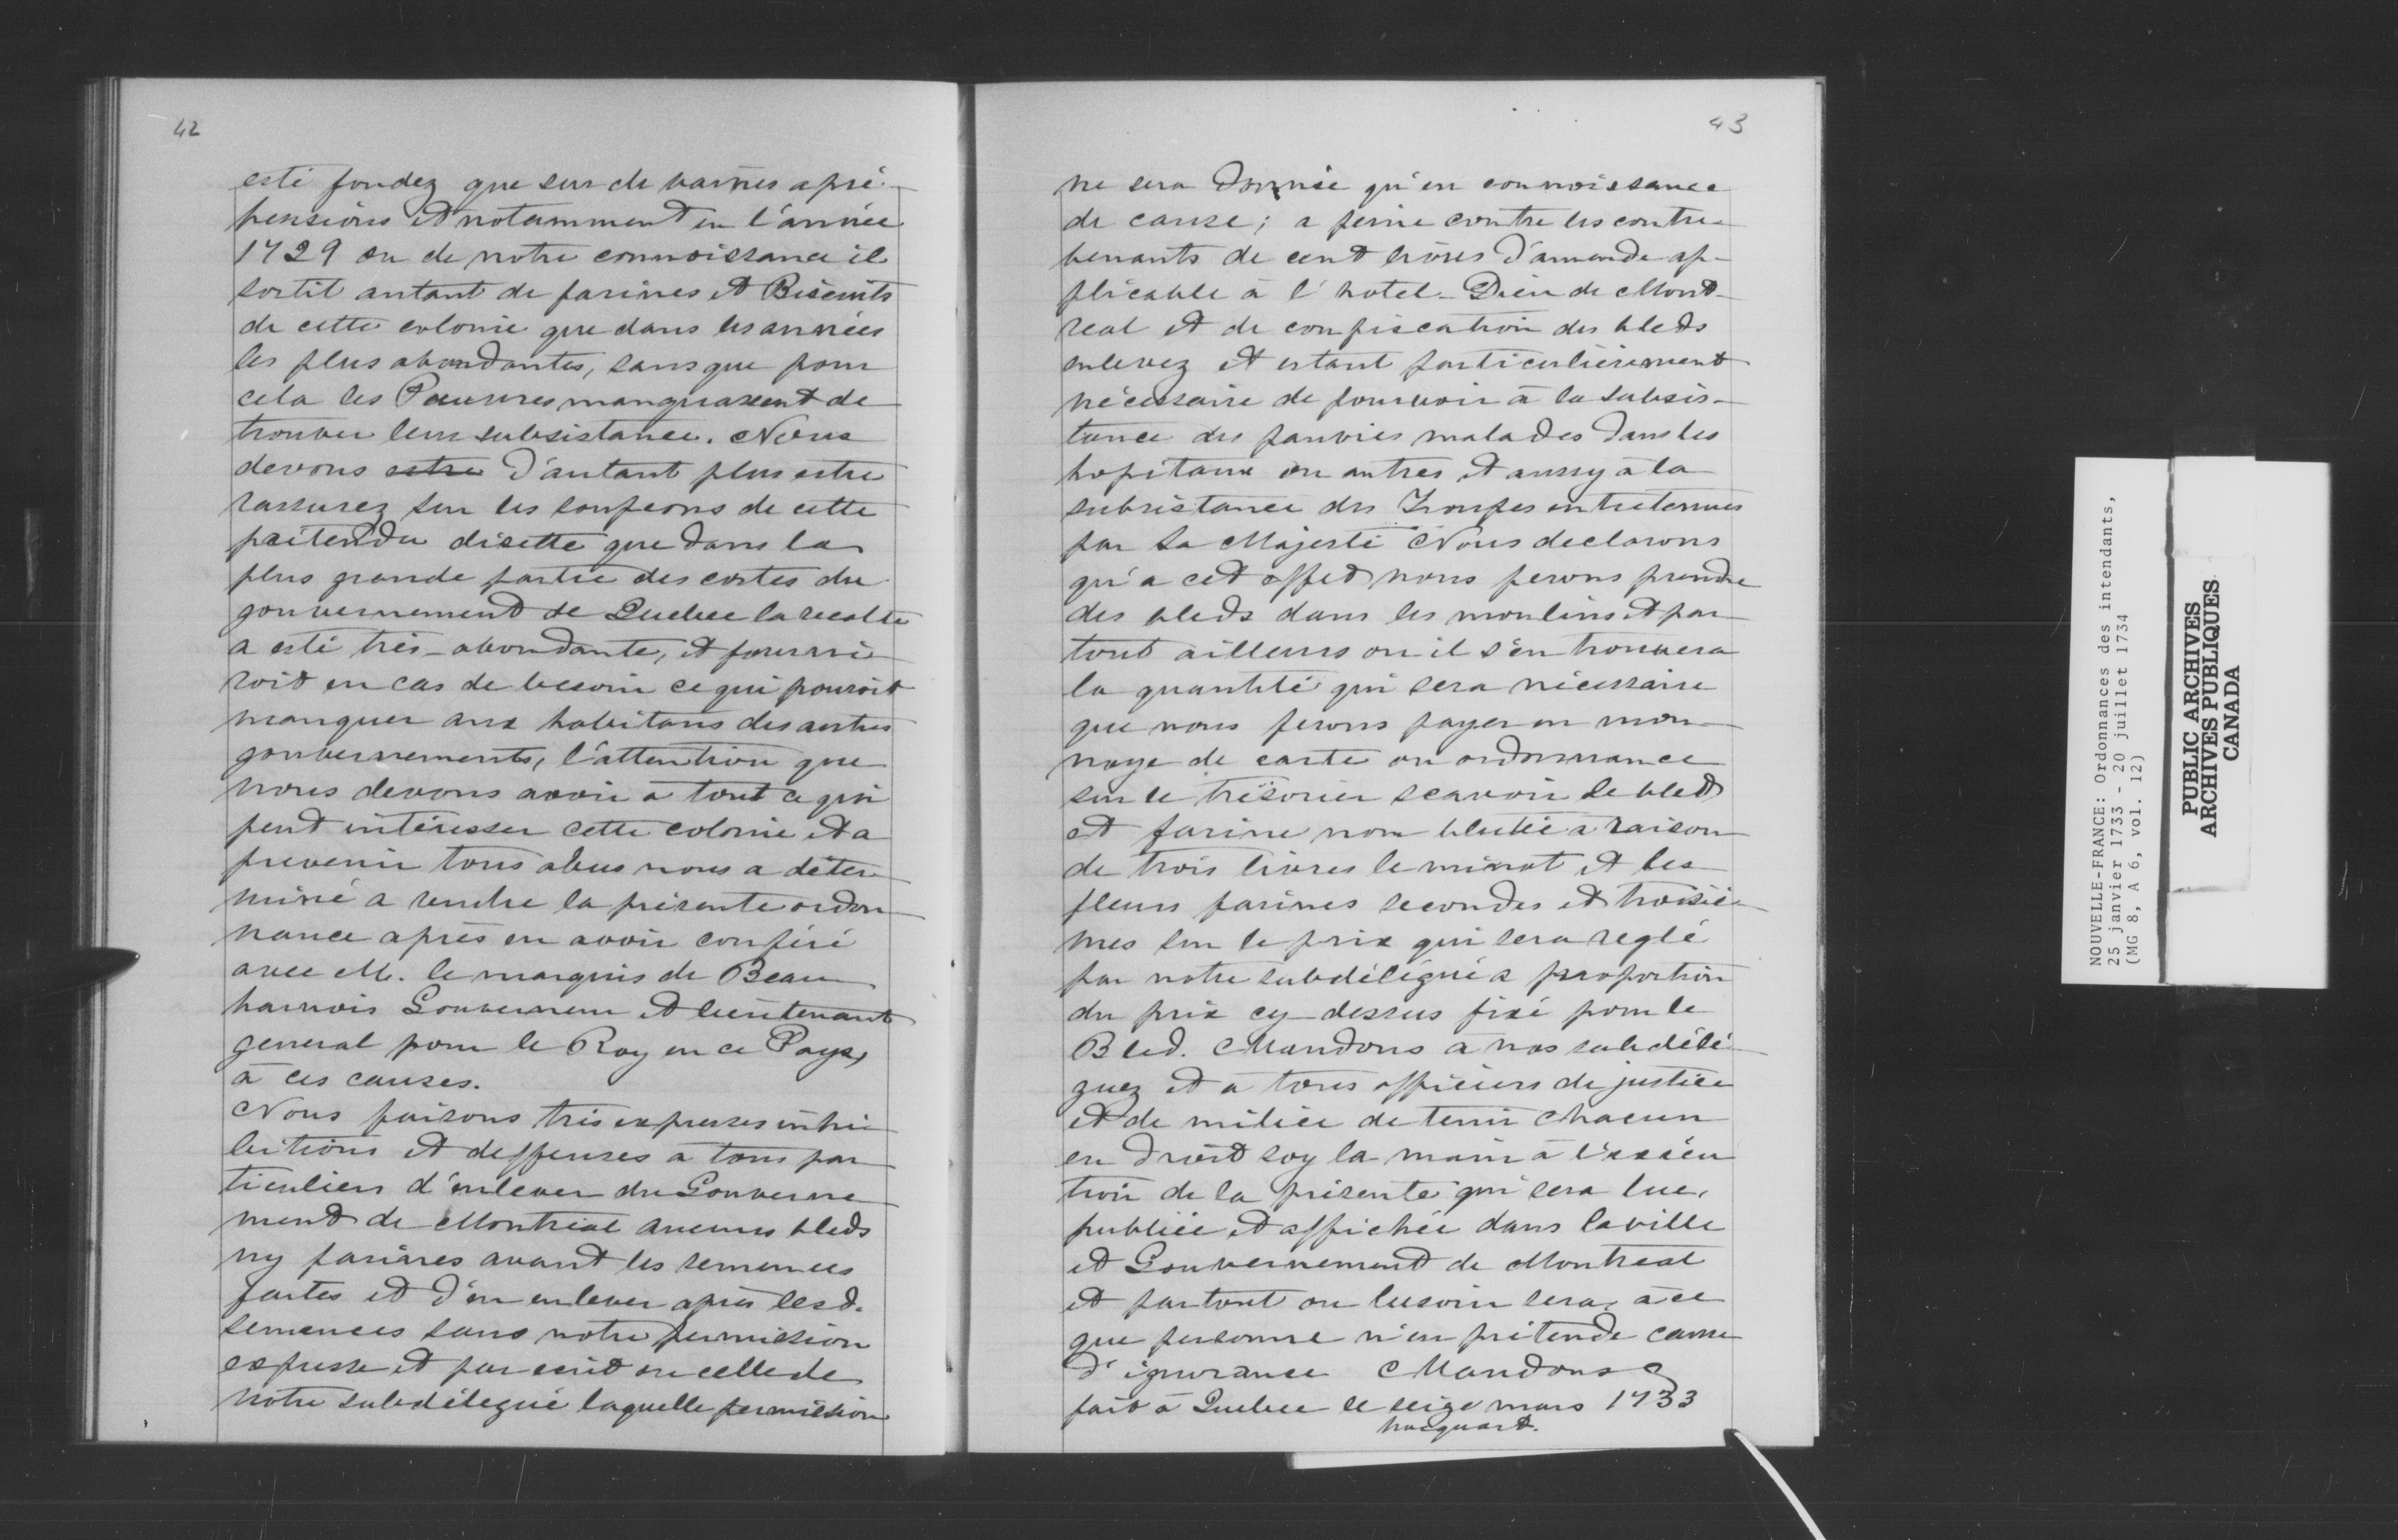 42
esté fondez que sur de vaines apré-
hensions et notamment en l'année
1729 ou de notre connoissance il
sortit autant de farines et Biscuits
de cette colonie que dans les années
les plus abondantes, sans que pour
cela les Pauvres manquassent de
trouver leur subsistance. Nous
devons estre d'autant plus estre
rassurez sur les soupçons de cette
prétendu disette que dans la
plus grande partie des costes du
gouvernement de Quebec la recolte
a esté très-abondante, et fourni
roit en cas de besoin ce qui pouroit
manquer aux habitans des autres
gouvernements, l'attention que
nous devons avoir a tout ce qui
peut intéresser cette colonie et a
prevenir tous abus nous a déter-
miné a rendre la présente ordon
nance après en avoir conféré
avec M. le marquis de Beau
harnois Gouverneur et lieutenant
general pour le Roy en ce Pays,
à ces causes.
Nous faisons très expresses inhi
bitions et deffenses a tous par
ticuliers d'enlever du Gouverne
ment de Montréal aucuns bleds
ny farines avant les semences
faites et d'en enlever après lesd.
semences sans notre permission
expresse et par ecrit ou celle de
notre subdélegué laquelle permission
43
ne sera donnée qu'en connoissance
de cause; a peine contre les contre-
venants de cent livres d'amende ap-
plicable à l'hotel-Dieu de Mont-
real et de confiscation des bleds
enlevez et estant particulièrement
nécessaire de pourvoir à la subsis-
tance des pauvres malades dans les
hopitaux ou autres et aussy à la
subsistance des Troupes entretenues
par Sa Majesté Nous declarons
qu'a cet effet nous ferons prendre
des bleds dans les moulins et par
tout ailleurs ou il s'en trouvera
la quantité qui sera nécessaire
que nous ferons payer en mon-
noye de carte ou ordonnance
sur le trésorier scavoir le bled
et farine non blutée a raison
de trois livres le minot et les
fleurs farines secondes et troisiè-
mes sur le prix qui sera reglé
par notre subdélégué a proportion
du prix cy-dessus fixé pour le
Bled. Mandons a nos subdélé-
guez et a tous officiers de justice
et de milice de tenir chacun
en droit soy la main à l'exécu
tion de la présente qui sera lue,
publiée et affichée dans la ville
et Gouvernement de Montreal
et partout ou besoin sera, à ce
que personne n'en prétende cause
d'ignorance Mandons
fait à Quebec le seize mars 1733
hocquart.
NOUVELLE-FRANCE: Ordonnances des intendants,
25 janvier 1733 - 20 juillet 1734
(MG 8, A 6, vol. 12)
PUBLIC ARCHIVES
ARCHIVES PUBLIQUES
CANADA